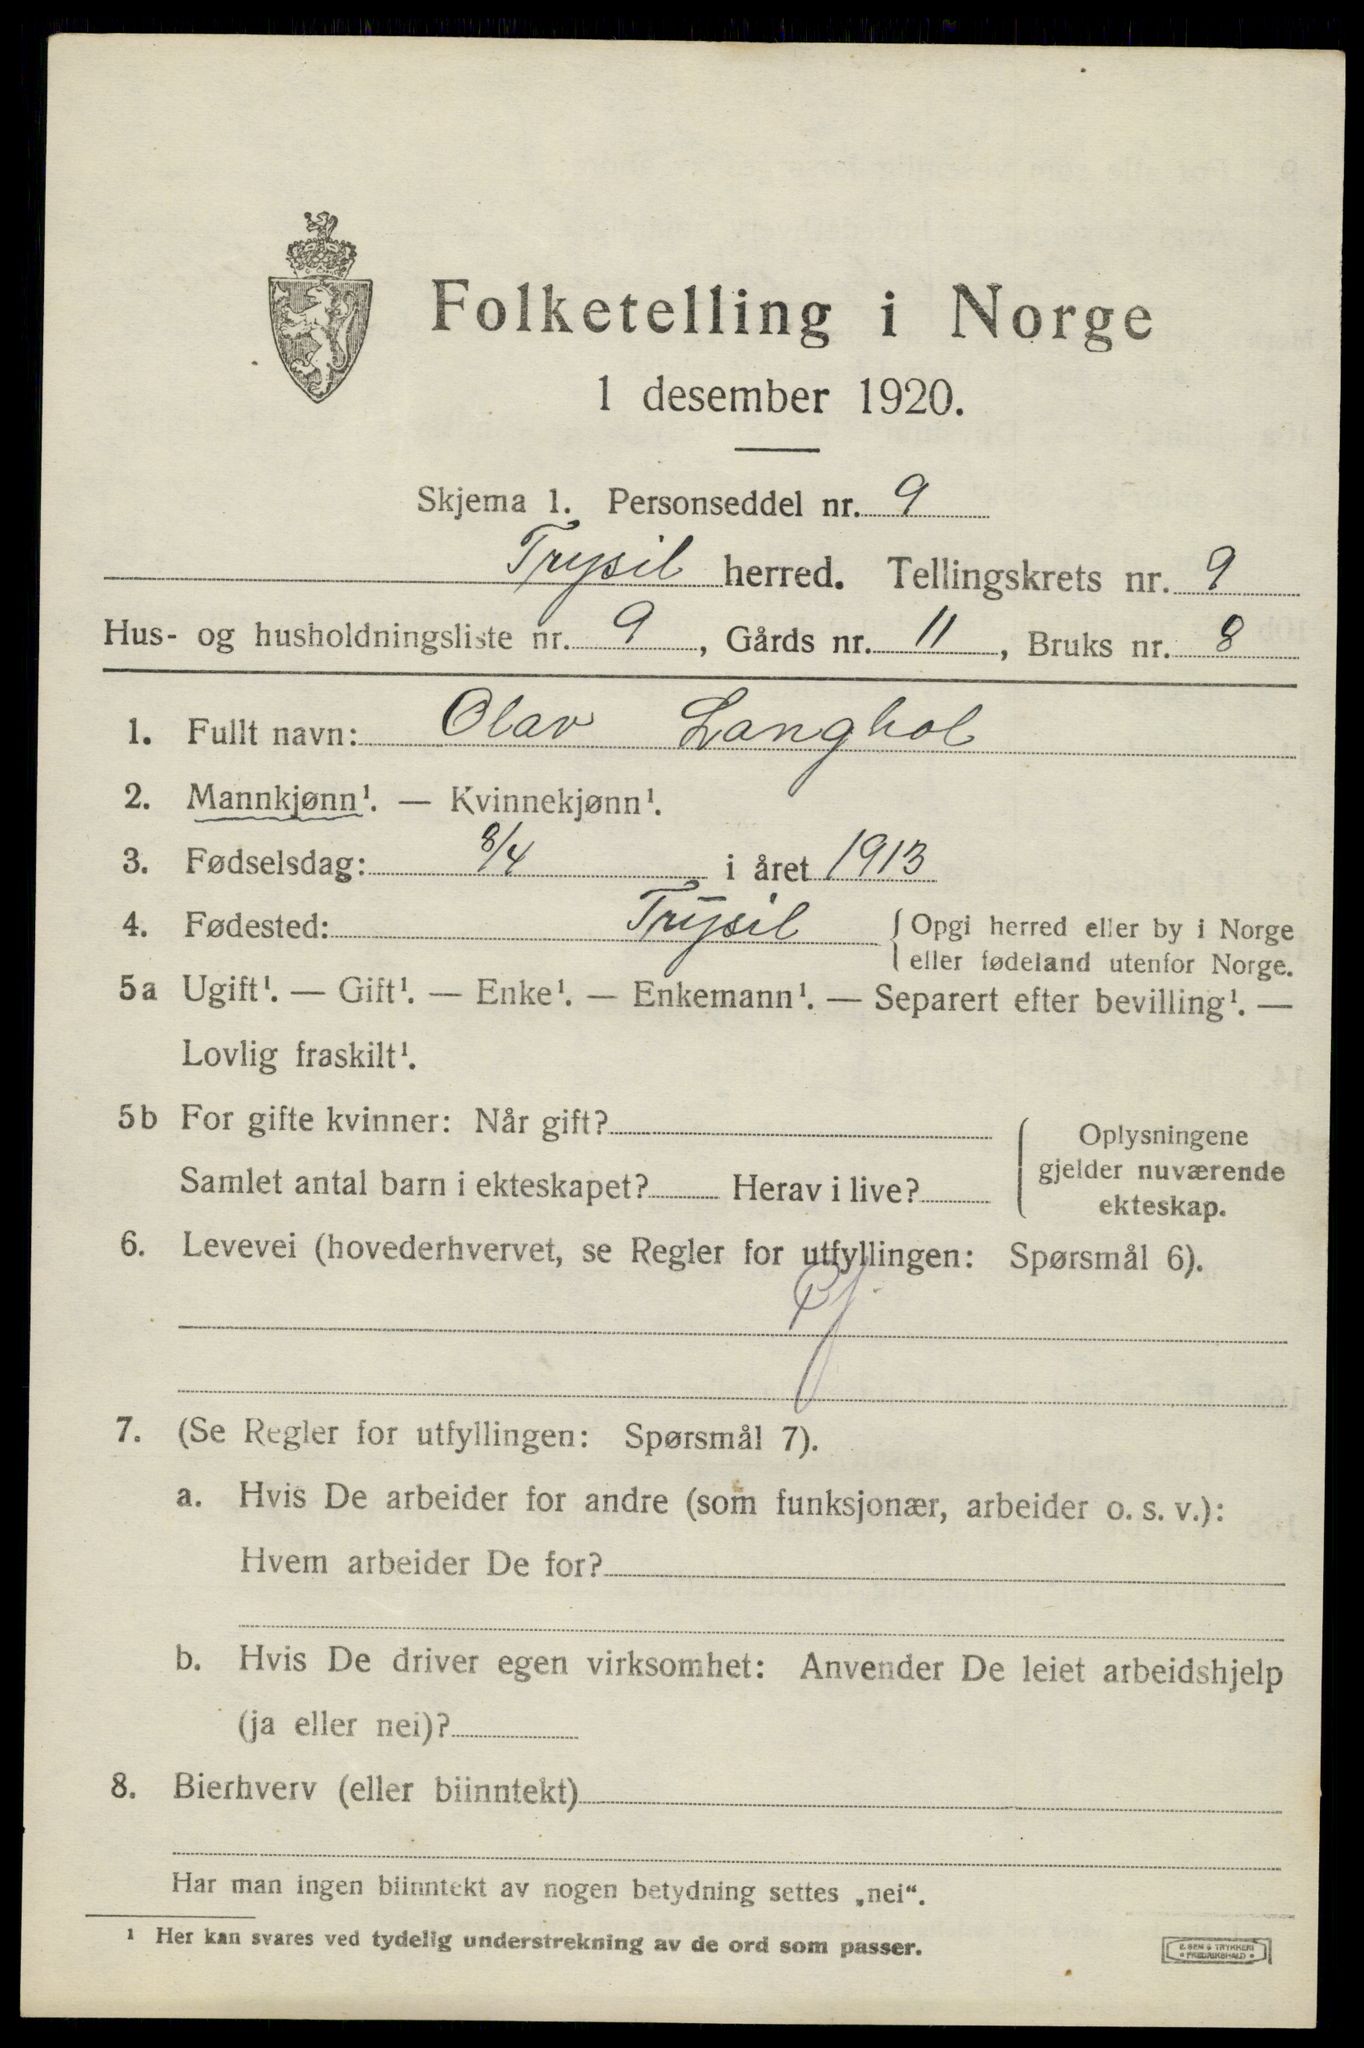 Folketelling i Norge
1 desember 1920.
Skjema 1. Personseddel nr. 9
Trysil herred. Tellingskrets nr. 9
Hus- og husholdningsliste nr. 9, Gårds nr. 11, Bruks nr. 8
1. Fullt navn: Olav Langhol
2. Mannkjønn¹. — Kvinnekjønn¹.
3. Fødselsdag: 8/4 i året 1913
4. Fødested: Trysil { Opgi herred eller by i Norge
eller fødeland utenfor Norge.
5a Ugift¹. — Gift¹. — Enke¹. — Enkemann¹. — Separert efter bevilling¹. —
Lovlig fraskilt¹.
5b For gifte kvinner: Når gift?
Samlet antal barn i ekteskapet? Herav i live?
Oplysningene
gjelder nuværende
ekteskap.
6. Levevei (hovederhvervet, se Regler for utfyllingen: Spørsmål 6).
7. (Se Regler for utfyllingen: Spørsmål 7).
a. Hvis De arbeider for andre (som funksjonær, arbeider o. s. v.):
Hvem arbeider De for?
b. Hvis De driver egen virksomhet: Anvender De leiet arbeidshjelp
(ja eller nei)?
8. Bierhverv (eller biinntekt)
Har man ingen biinntekt av nogen betydning settes „nei“.
¹ Her kan svares ved tydelig understrekning av de ord som passer.
FREDRIKSHALD